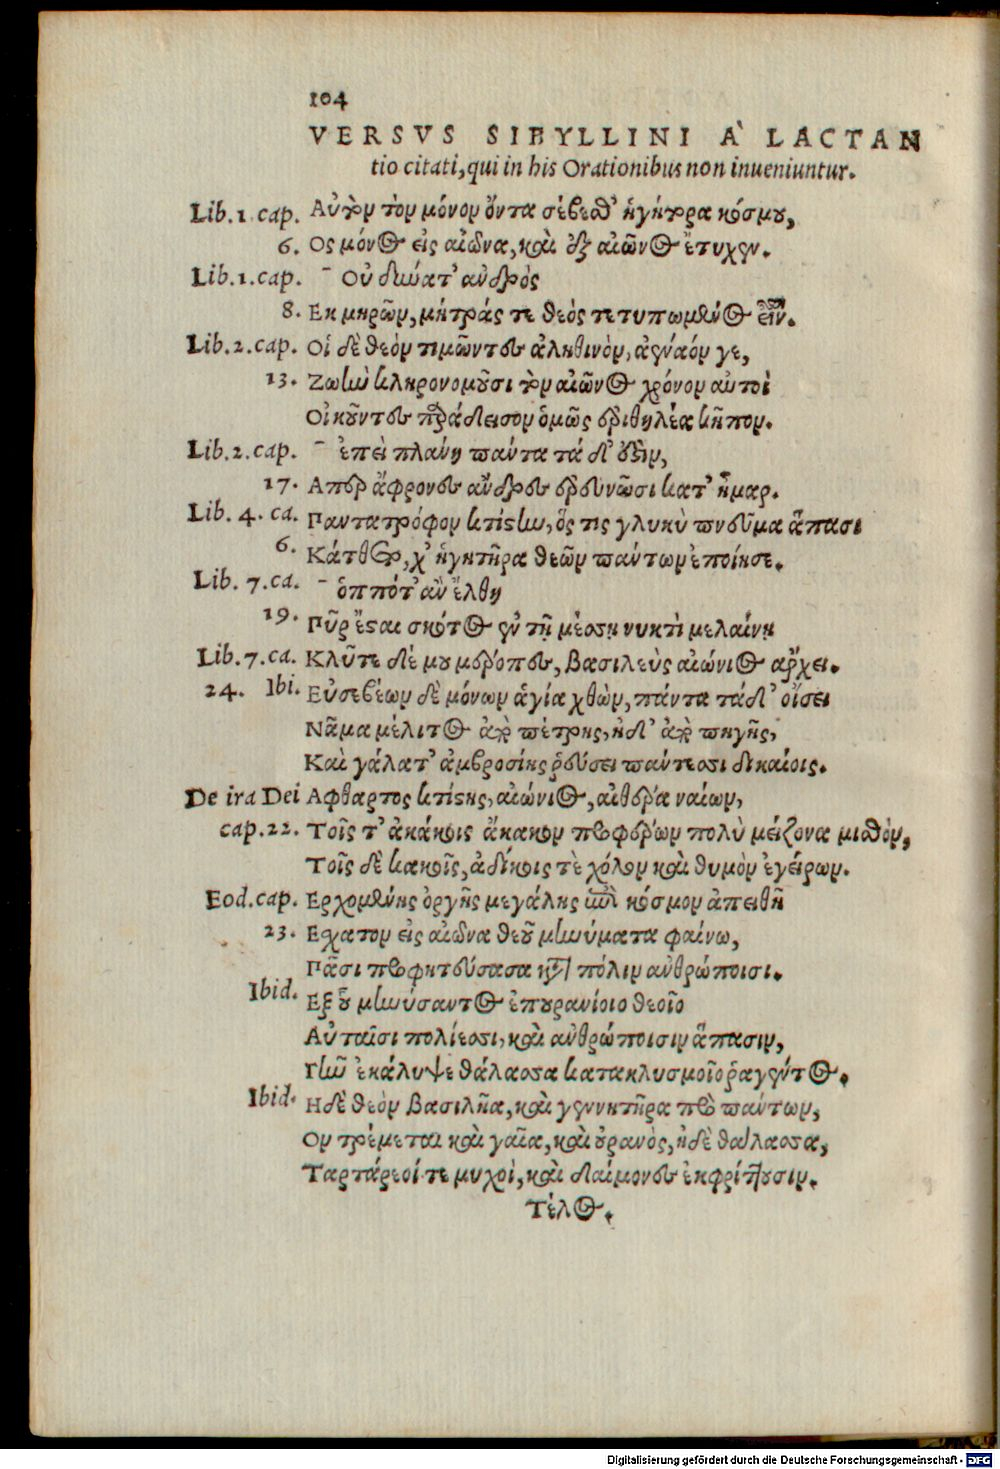 104
VERSVS SIBYLLINI A' LACTAN
tio citati, qui in his Orationibus non inueniuntur.
Lib. 1. cap. Αὐτὸν τὸν μόνον ὄντα σέβεσθ' ἡγήτορα κόσμου,
6. Ος μόνος εἰς αἰῶνα, καὶ ἐξ αἰῶνος ἐτύχθη.
Lib. 1. cap. – Οὐ δύνατ' ἀνδρὸς
8. Εκ μηρῶν, μήτρας τε θεὸς τετυπωμένος εἶναι.
Lib. 2. cap. Οἱ δὲ θεὸν τιμῶντες ἀληθινὸν, ἀέναόν γε,
13. Ζωὴν κληρονομοῦσι τὸν αἰῶνος χρόνον αὐτοὶ
Οἰκοῦντες παράδεισον ὁμῶς ἐριθηλέα κῆπον.
Lib. 2. cap. – ἐπεὶ πλάνη πάντα τά δ' ἐστὶν,
17. Απερ ἄφρονες ἄνδρες ἐρευνῶσι κατ' ἦμαρ.
Lib. 4. ca. Παντατρόφον κτίστην, ὅς τις γλυκὺ πνεῦμα ἅπασι
6. Κάτθετο, χ' ἡγητῆρα θεῶν πάντων ἐποίησε.
Lib. 7. ca. – ὁππότ' ἂν ἔλθῃ
19. Πῦρ ἔσται σκότος ἐν τῇ μέσσῃ νυκτὶ μελαίνῃ
Lib. 7. ca. Κλῦτε δέ μου μέροπες, βασιλεὺς αἰώνιος ἄρχει.
24. Ibi. Εὐσεβέων δὲ μόνων ἁγία χθὼν, πάντα τάδ' οἴσει
Νᾶμα μέλιτος ἀπὸ πέτρης, ἠδ' ἀπὸ πηγῆς,
Καὶ γάλατ' ἀμβροσίης ῥεύσει πάντεσσι δικαίοις.
De ira Dei Αφθαρτος κτίστης, αἰώνιος, αἰθέρα ναίων,
cap. 22. Τοῖς τ' ἀκάκοις ἄκακον προφέρων πολὺ μείζονα μισθὸν,
Τοῖς δὲ κακοῖς, ἀδίκοις τὲ χόλον καὶ θυμὸν ἐγείρων.
Eod. cap. Ερχομένης ὀργῆς μεγάλης ἐπὶ κόσμον ἀπειθῆ
23. Εχατον εἰς αἰῶνα θεοῦ μηνύματα φαίνω,
Πᾶσι προφητεύσασα κατὰ πόλιν ἀνθρώποισι.
Ibid. Εξ οὗ μηνύσαντος ἐπουρανίοιο θεοῖο
Αὐταῖσι πολίεσσι, καὶ ἀνθρώποισιν ἅπασιν,
Γῆν ἐκάλυψε θάλασσα κατακλυσμοῖο ῥαγέντος.
Ibid. Η δὲ θεὸν βασιλῆα, καὶ γεννητῆρα πρὸ πάντων,
Ον τρέμεται καὶ γαῖα, καὶ οὐρανὸς, ἠδὲ θάλασσα,
Ταρτάρεοί τε μυχοὶ, καὶ δαίμονες ἐκφρίττουσιν.
Τέλος.
Digitalisierung gefördert durch die Deutsche Forschungsgemeinschaft - DFG